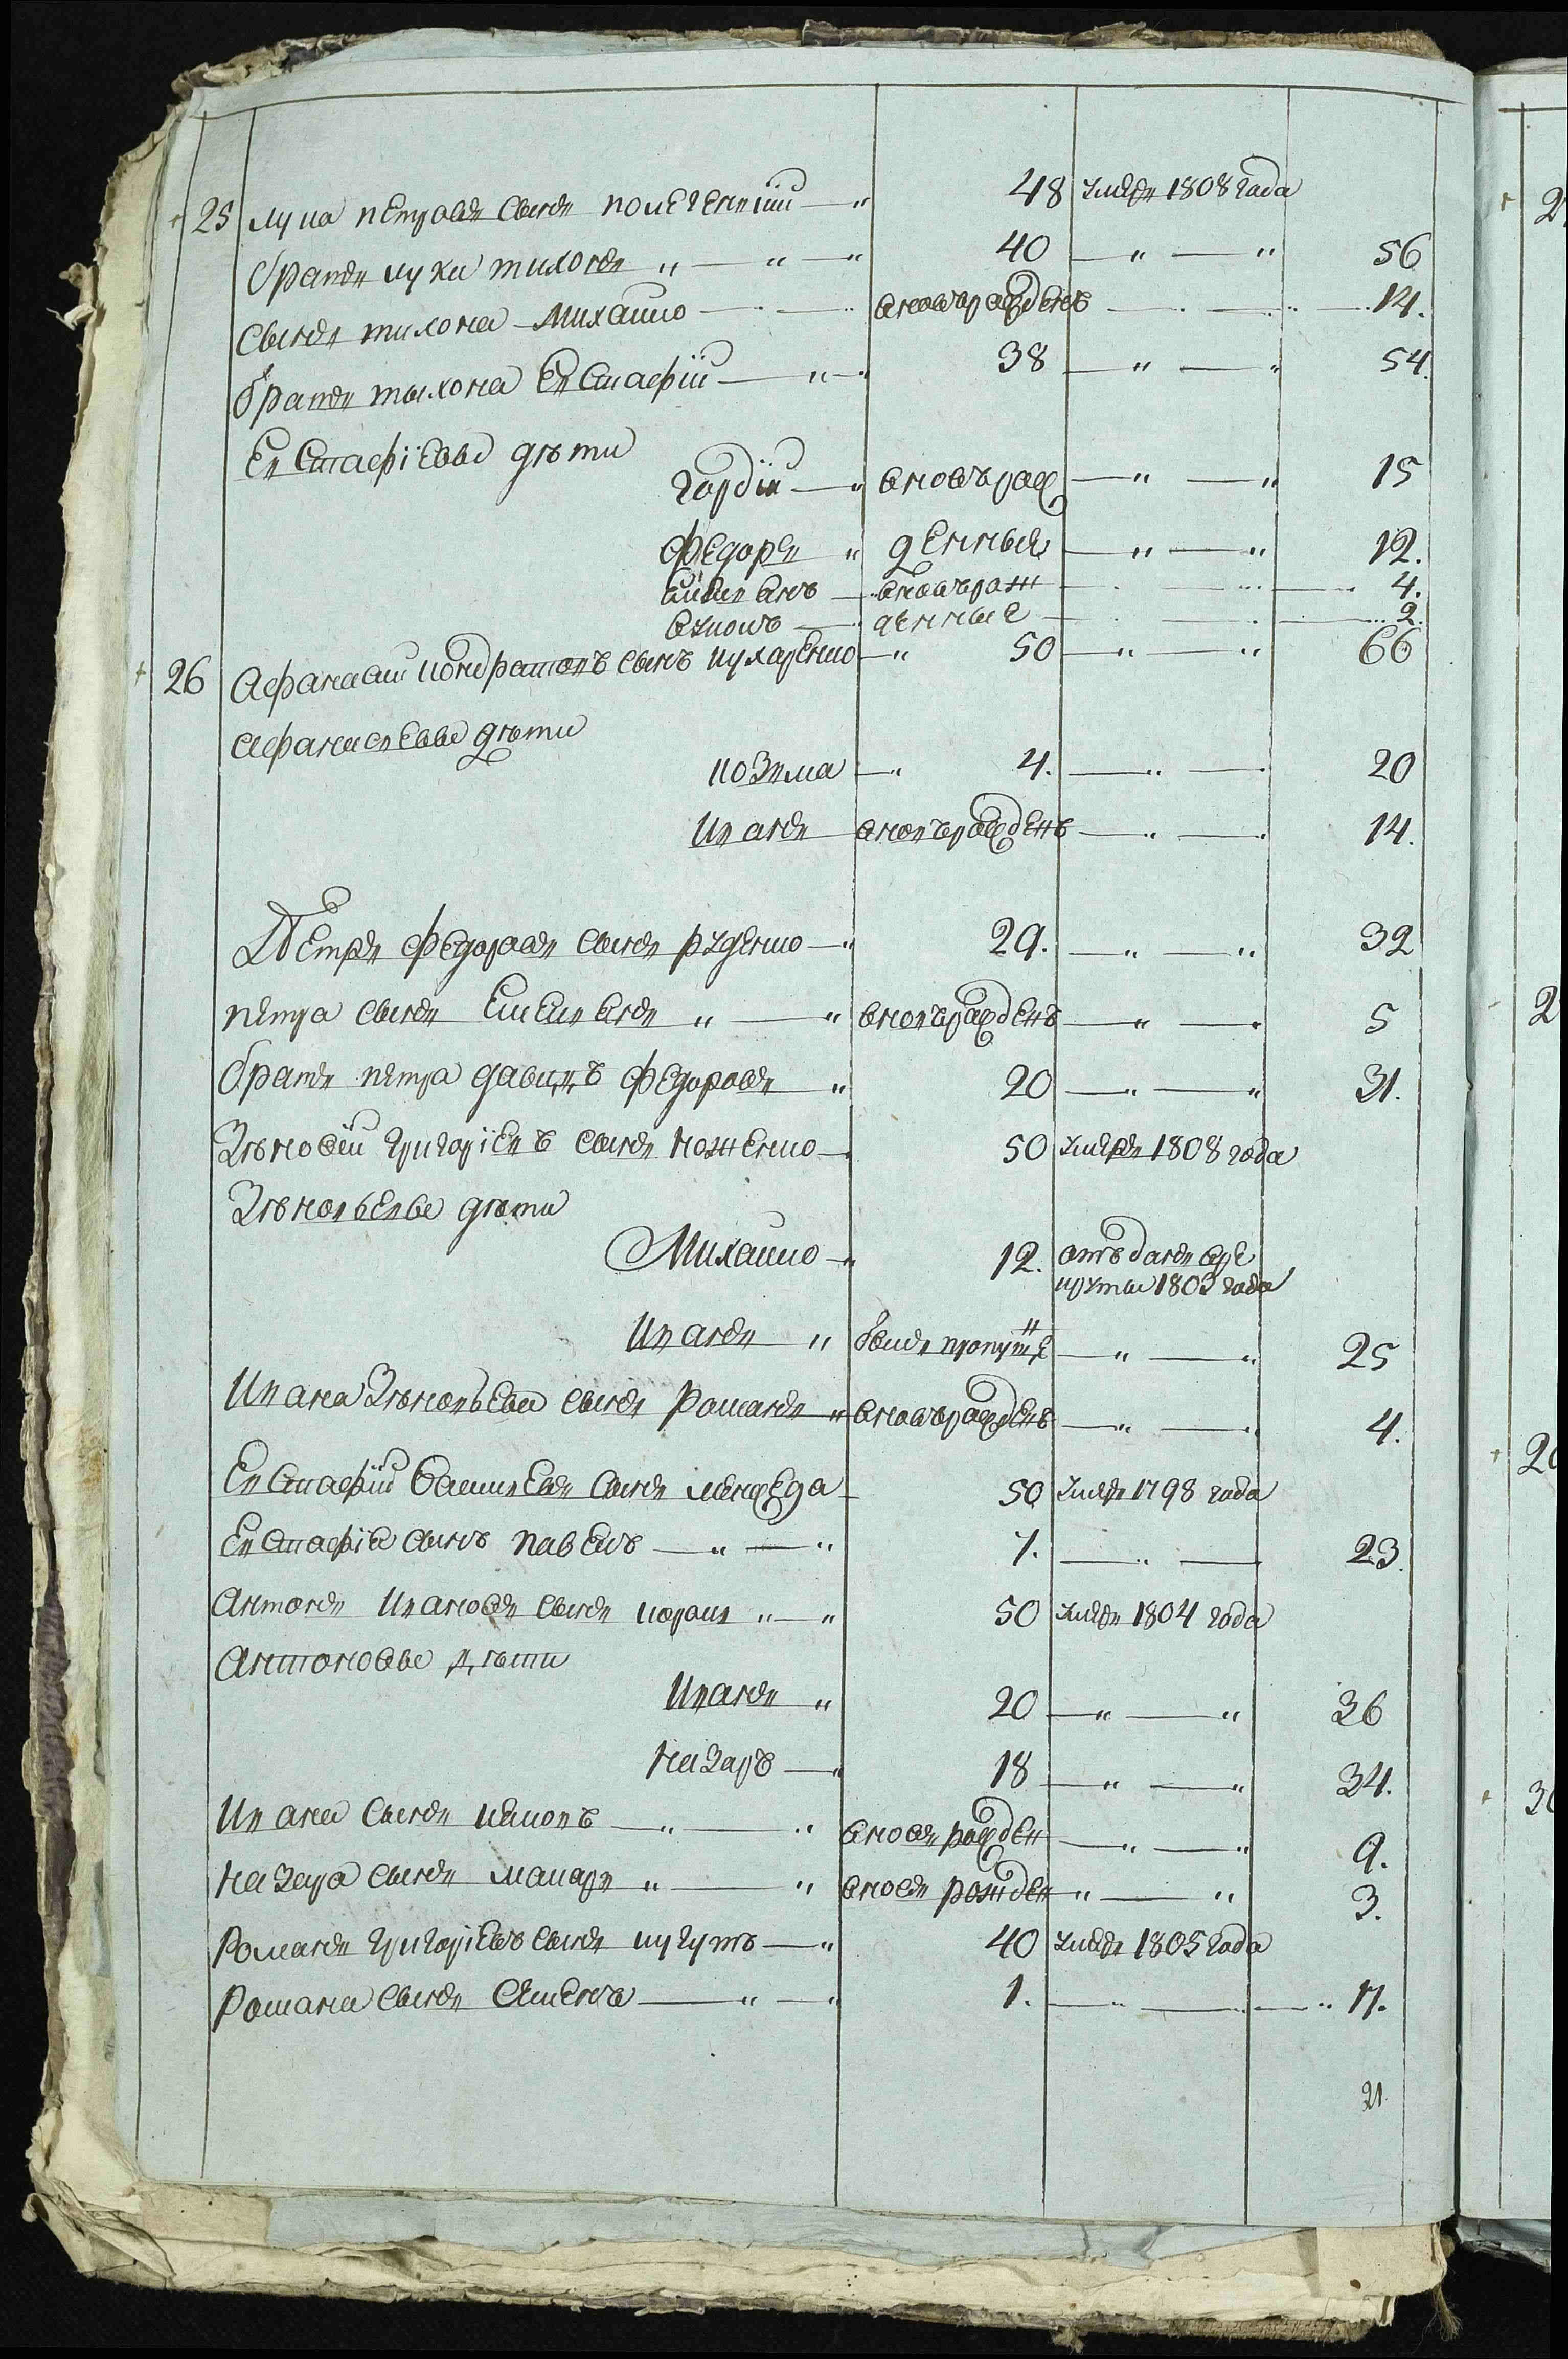 25 лука петровъ сынъ 48 умеръ 1808 года
братъ луки тихонъ 40 56
сынъ тихона Михаило вновьрожденъ 14.
братъ тихона Евстафiй 38 54.
Евстафiевы дѣти
гордiй вновърож 15
федоръ денные 12.
вновърож 4.
денные 2.
26 Афанасий кондратовъ сынъ кухаренко 50 66
Афанасьевы дѣти
козьма 4. 20
иванъ вновърожденъ 14.
Петръ федоровъ сынъ руденко 29. 32
петра сынъ вновърожденъ 5
братъ петра давидъ федоровъ 20 31.
Зѣновiй григорiевъ сынъ ноженко 50 умеръ 1808 года
Зѣновьевы дѣти
Михаило 12. отъданъ врекруты 1803 года
иванъ былъ пропущ 25
ивана Зѣновьева сынъ романъ вновърожденъ 4.
Евстафiй васильевъ сынъ 50 умеръ 1798 года
Евстафiя сынъ павелъ 7. 23.
Антонъ ивановъ сынъ 50 умеръ 1804 года
Антоновы дѣти
иванъ 20 36
назаръ 18 34.
ивана сынъ вновърожден 9.
назара сынъ макаръ вновърожден 3.
Романъ григорiевъ сынъ 40 умеръ 1805 года
романа сынъ семенъ 1. 17.
21.